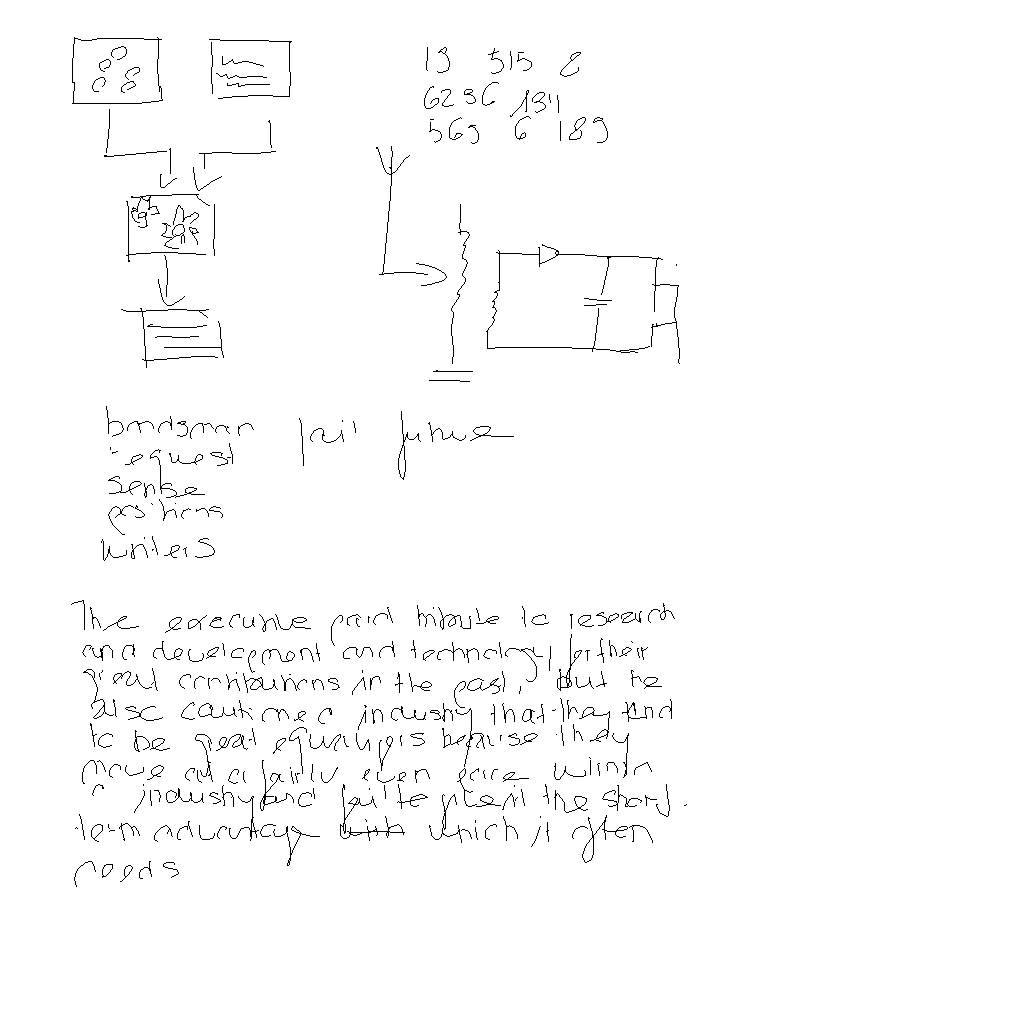 19 515 8
6236 134
569 6 189
bondsman fail future
request
sense
positions
writers
The executive paid tribute to research
and development and technology for their
great contributions in the past, but he
also cautioned industry that they tend
to be great equalizers because they
move at a fairly even pace within
industry and fail to give it the short
term advantage which it often
needs